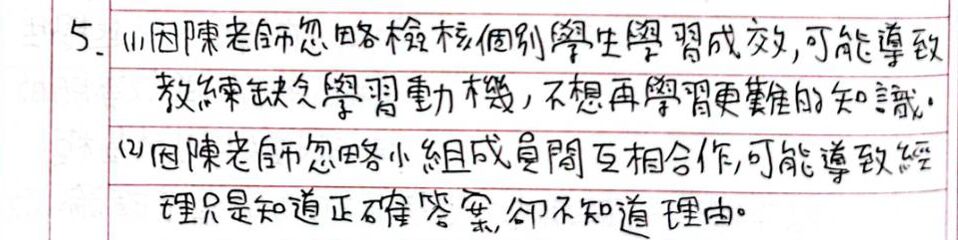 5. (1)因陳老師忽略檢核個別學生學習成效,可能導致
教練缺乏學習動機,不想再學習更難的知識。
(2)因陳老師忽略小組成員間互相合作,可能導致經
理只是知道正確答案,卻不知道理由。